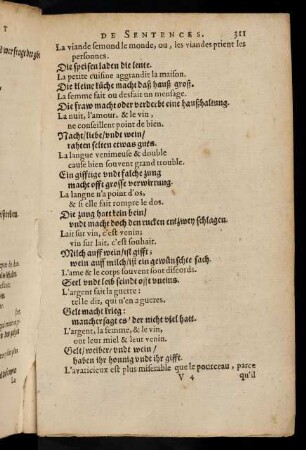 DE SENTENCES. 311
La viande semond le monde, ou, les viandes prient les
personnes.
Die speisen laden die leute.
La petite cuisine aggrandit la maison.
Die kleine küche macht daß hauß groß.
La femme fait ou desfait un mesnage.
Die fraw macht oder verderbt eine haußhaltung.
La nuit, l'amour, & le vin,
ne conseillent point de bien.
Nacht / liebe / vndt wein /
rahten selten etwas guts.
La langue venimeuse & double
cause bien souvent grand trouble.
Ein gifftige vndt falsche zung
macht offt grosse verwirrung.
La langne n'a point d'os,
& si elle fait rompre le dos.
Die zung hatt kein bein /
vndt macht doch den rucken entzwey schlagen.
Lait sur vin, c'est venin;
vin sur lait, c'est souhait.
Milch auff wein / ist gifft;
wein auff milch / ist ein gewünschte sach.
L'ame & le corps souvent sont discords.
Seel vndt leib seindt offt vneins.
L'argent fait la guerre:
tel le dit, qui n'en a gueres.
Gelt macht krieg:
mancher sagt es / der nicht viel hatt.
L'argent, la femme, & le vin,
ont leur miel & leur venin.
Gelt / weiber / vndt wein /
haben ihr honnig vndt ihr gifft.
L'avaricieux est plus miserable que le pourceau, parce
V 4 qu'il